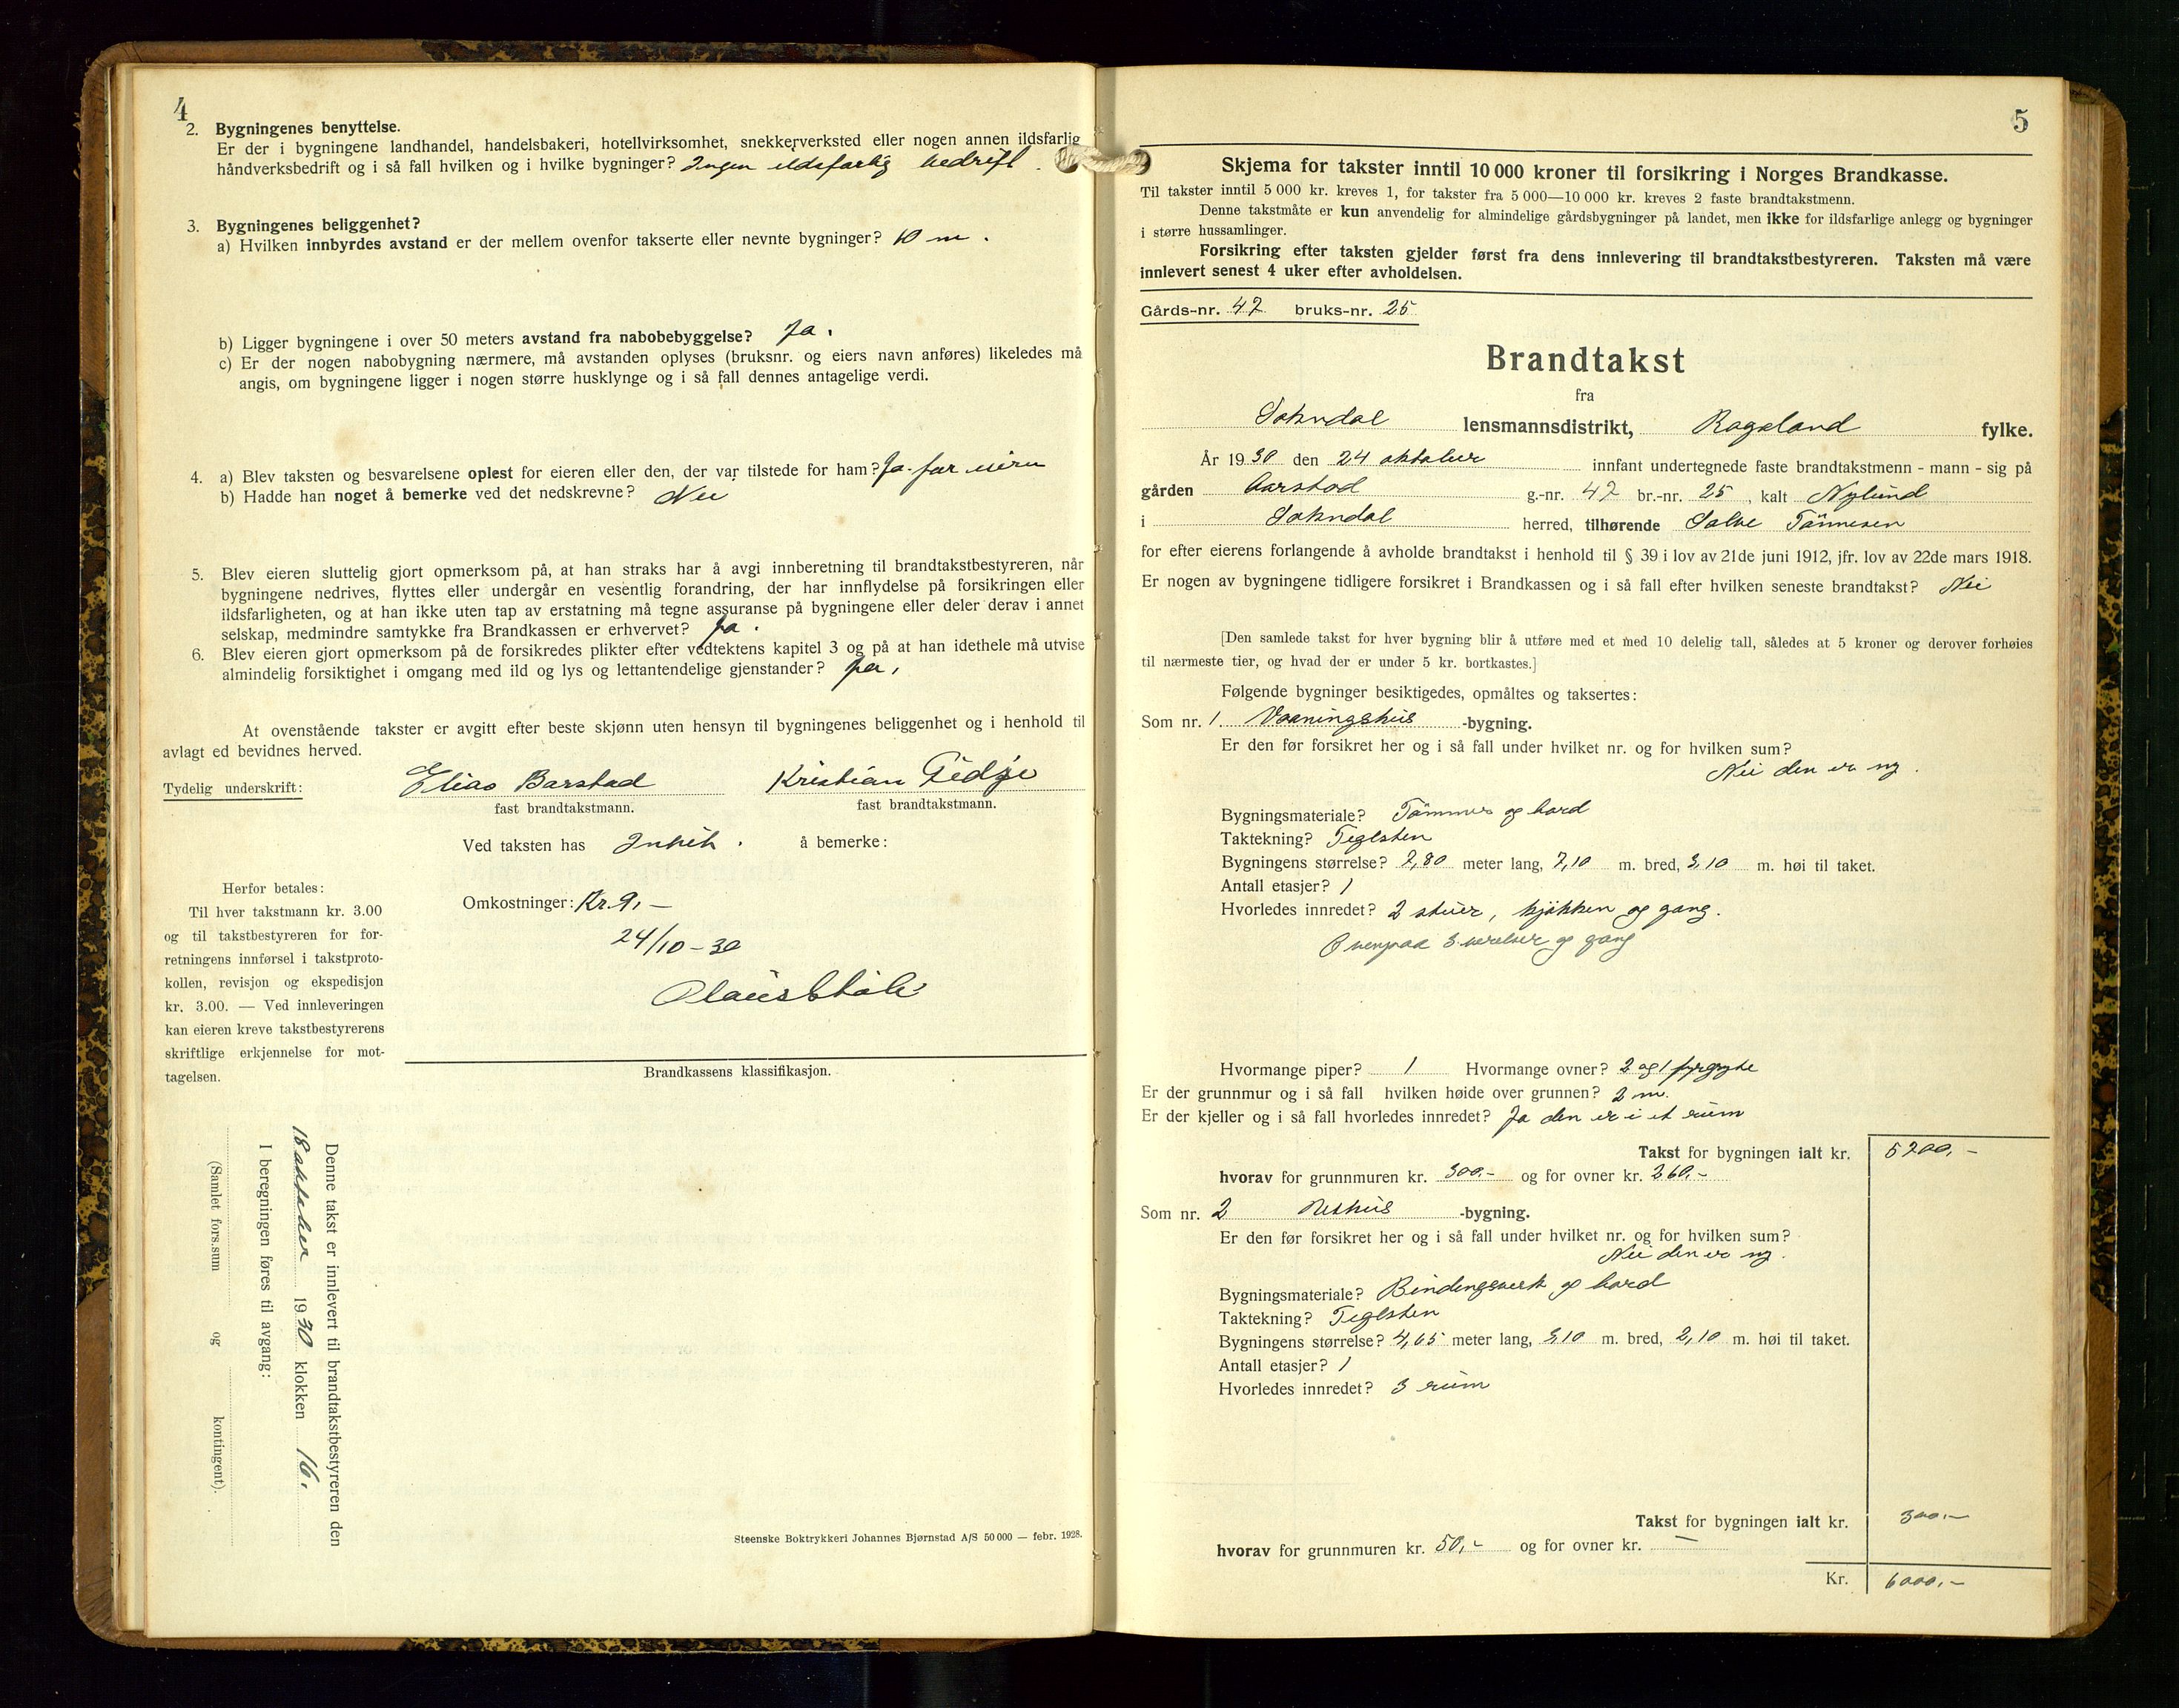 4
2. Bygningenes benyttelse.
Er der i bygningene landhandel, handelsbakeri, hotellvirksomhet, snekkerverksted eller nogen annen ildsfarlig
håndverksbedrift og i så fall hvilken og i hvilke bygninger? Ingen ildsfarlig bedrift.
3. Bygningenes beliggenhet?
a) Hvilken innbyrdes avstand er der mellem ovenfor takserte eller nevnte bygninger? 10 m.
b) Ligger bygningene i over 50 meters avstand fra nabobebyggelse? Ja.
c) Er der nogen nabobygning nærmere, må avstanden oplyses (bruksnr. og eiers navn anføres) likeledes må
angis, om bygningene ligger i nogen større husklynge og i så fall dennes antagelige verdi.
4. a) Blev taksten og besvarelsene oplest for eieren eller den, der var tilstede for ham? Ja for eieren
b) Hadde han noget å bemerke ved det nedskrevne? Nei
5. Blev eieren sluttelig gjort opmerksom på, at han straks har å avgi innberetning til brandtakstbestyreren, når
bygningene nedrives, flyttes eller undergår en vesentlig forandring, der har innflydelse på forsikringen eller
ildsfarligheten, og at han ikke uten tap av erstatning må tegne assuranse på bygningene eller deler derav i annet
selskap, medmindre samtykke fra Brandkassen er erhvervet? Ja.
6. Blev eieren gjort opmerksom på de forsikredes plikter efter vedtektens kapitel 3 og på at han idethele må utvise
almindelig forsiktighet i omgang med ild og lys og lettantendelige gjenstander? Ja,
At ovenstående takster er avgitt efter beste skjønn uten hensyn til bygningenes beliggenhet og i henhold til
avlagt ed bevidnes herved.
Tydelig underskrift: Elias Barstad Kristian
fast brandtakstmann. fast brandtakstmann.
Ved taksten has Intet. å bemerke:
Omkostninger: Kr. 9,-
24/10-30
Herfor betales:
Til hver takstmann kr. 3.00
og til takstbestyreren for for-
retningens innførsel i takstproto-
kollen, revisjon og ekspedisjon
kr. 3.00. — Ved innleveringen
kan eieren kreve takstbestyrerens
skriftlige erkjennelse for mot-
tagelsen.
Brandkassens klassifikasjon.
Denne takst er innlevert til brandtakstbestyreren den
18 oktober 1930 klokken 16.
I beregningen føres til avgang:
(Samlet fors.sum og kontingent).
Steenske Boktrykkeri Johannes Bjørnstad A/S 50 000 — febr. 1928.
5
Skjema for takster inntil 10 000 kroner til forsikring i Norges Brandkasse.
Til takster inntil 5 000 kr. kreves 1, for takster fra 5 000—10 000 kr. kreves 2 faste brandtakstmenn.
Denne takstmåte er kun anvendelig for almindelige gårdsbygninger på landet, men ikke for ildsfarlige anlegg og bygninger
i større hussamlinger.
Forsikring efter taksten gjelder først fra dens innlevering til brandtakstbestyreren. Taksten må være
innlevert senest 4 uker efter avholdelsen.
Gårds-nr. 47 bruks-nr. 25
Brandtakst
fra
Sokndal lensmannsdistrikt, Rogaland fylke.
År 1930 den 24 oktober innfant undertegnede faste brandtakstmenn - mann - sig på
gården Aarstad g.-nr. 47 br.-nr. 25, kalt Nylund
i Sokndal herred, tilhørende Salve Tønnesen
for efter eierens forlangende å avholde brandtakst i henhold til § 39 i lov av 21de juni 1912, jfr. lov av 22de mars 1918.
Er nogen av bygningene tidligere forsikret i Brandkassen og i så fall efter hvilken seneste brandtakst? Nei
[Den samlede takst for hver bygning blir å utføre med et med 10 delelig tall, således at 5 kroner og derover forhøies
til nærmeste tier, og hvad der er under 5 kr. bortkastes.]
Følgende bygninger besiktigedes, opmåltes og taksertes:
Som nr. 1 Vaaningshus -bygning.
Er den før forsikret her og i så fall under hvilket nr. og for hvilken sum?
Nei den er ny.
Bygningsmateriale? Tømmer og bord
Taktekning? Teglsten
Bygningens størrelse? 7,80 meter lang, 7,10 m. bred, 3,10 m. høi til taket.
Antall etasjer? 1
Hvorledes innredet? 2 stuer, kjøkken og gang.
Ovenpaa 3 værelser og gang
Hvormange piper? 1 Hvormange ovner? 2 og 1 fyrgryte
Er der grunnmur og i så fall hvilken høide over grunnen? 2 m.
Er der kjeller og i så fall hvorledes innredet? Ja den er i et rum
Takst for bygningen ialt kr. 5700,-
hvorav for grunnmuren kr. 300,- og for ovner kr. 260,-
Som nr. 2 Uthus -bygning.
Er den før forsikret her og i så fall under hvilket nr. og for hvilken sum?
Nei den er ny.
Bygningsmateriale? Bindingsverk og bord
Taktekning? Teglsten
Bygningens størrelse? 4,65 meter lang, 3,10 m. bred, 2,10 m. høi til taket.
Antall etasjer? 1
Hvorledes innredet? 3 rum
Takst for bygningen ialt kr. 300,-
hvorav for grunnmuren kr. 50,- og for ovner kr. —
Kr. 6000,-